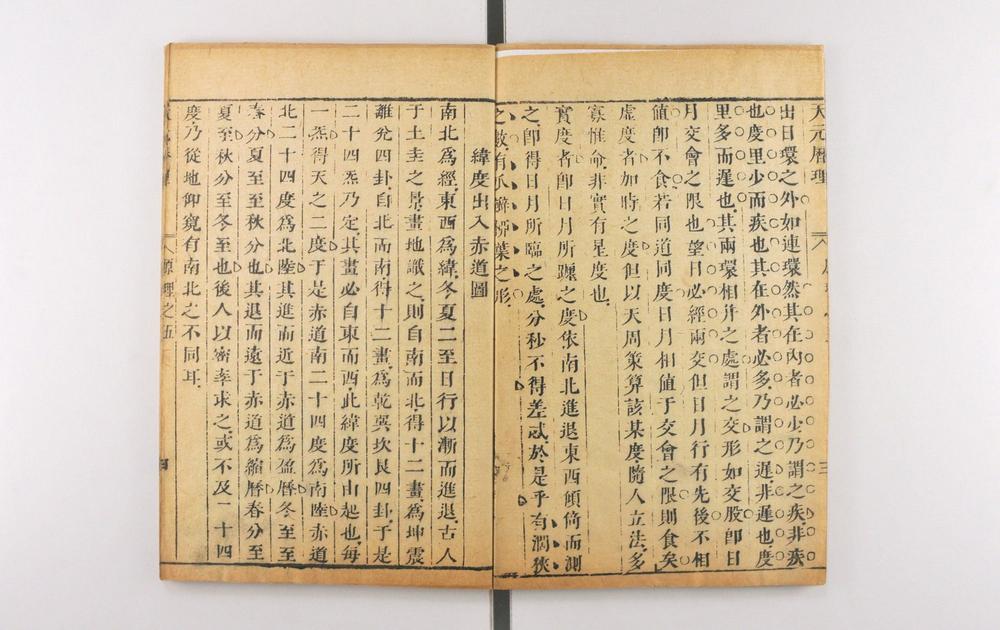 天元曆理
出日環之外如連環然其在內者必少乃謂之疾非疾
也度里少而疾也其在外者必多乃謂之遲非遲也度
里多而遲也其兩環相幷之處謂之交形如交股卽日
月交會之限也望日必經兩交但日月行有先後不相
値卽不食若同道同度日月相値于交會之限則食矣
虛度者如時之度但以天周策算該某度隨人立法多
寡惟命非實有星度也
實度者卽日月所躔之度依南北進退東西傾倚而測
之卽得日月所臨之處分秒不得差忒於是乎有濶狹
之數有瓜瓣柳葉之形
緯度出入赤道圖
南北爲經東西爲緯冬夏二至日行以漸而進退古人
于土圭之景畫地識之則自南而北得十二畫爲坤震
離兊四卦自北而南得十二畫爲乾巽坎艮四卦于是
二十四炁乃定其畫必自東而西此緯度所由起也每
一炁得天之二度于是赤道南二十四度爲南陸赤道
北二十四度爲北陸其進而近于赤道爲盈曆冬至至
春分夏至至秋分也其退而遠于赤道爲縮曆春分至
夏至秋分至冬至也後人以密率求之或不及二十四
度乃從地仰窺有南北之不同耳
原理之五
四